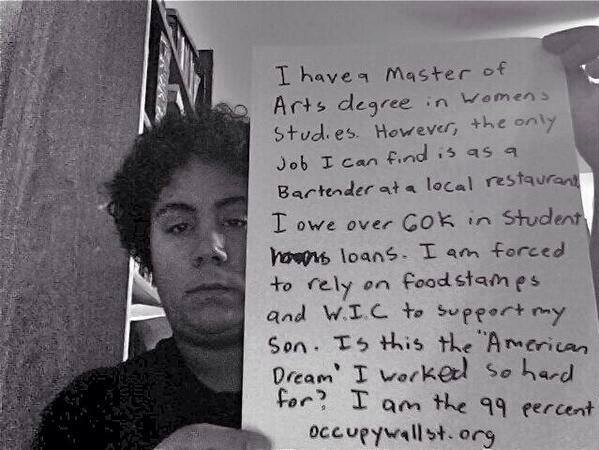 I have a Master of
Arts degree in Womens
Studies. However, the only
Job I can find is as a
Bartender at a local restaurant.
I owe over 60K in Student
loans. I am forced
to rely on foodstamps
and W.I.C to support my
Son. Is this the "American
Dream' I worked so hard
for? I am the 99 percent
occupywallst.org